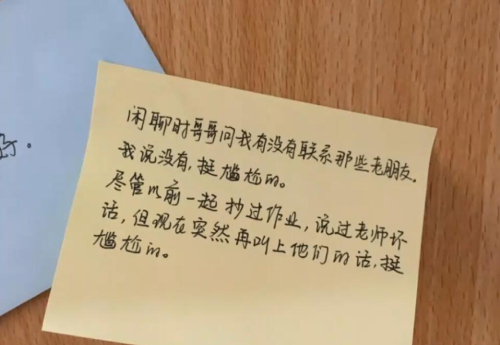 闲聊时哥哥问我有没有联系那些老朋友.
我说没有,挺尴尬的。
尽管以前一起抄过作业,说过老师坏
话,但现在突然再叫上他们的话,挺
尴尬的。